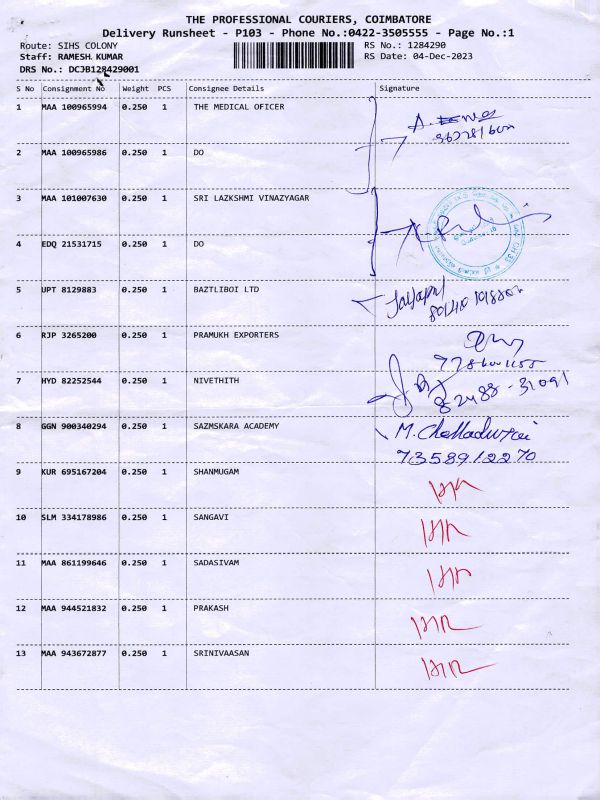 THE PROFESSIONAL COURIERS, COIMBATORE
Delivery Runsheet - P103 - Phone No.:0422-3505555 - Page No.:1
Route: SIHS COLONY RS No.: 1284290
Staff: RAMESH KUMAR RS Date: 04-Dec-2023
DRS No.: DCJB128429001
S No Consignment No Weight PCS Consignee Details Signature
1 MAA 100965994 0.250 1 THE MEDICAL OFICER
2 MAA 100965986 0.250 1 DO
3 MAA 101007630 0.250 1 SRI LAZKSHMI VINAZYAGAR
4 EDQ 21531715 0.250 1 DO
5 UPT 8129883 0.250 1 BAZTLIBOI LTD
6 RJP 3265200 0.250 1 PRAMUKH EXPORTERS
7 HYD 82252544 0.250 1 NIVETHITH
82488-31091
8 GGN 900340294 0.250 1 SAZMSKARA ACADEMY M. Chelladurai
7358912270
9 KUR 695167204 0.250 1 SHANMUGAM
10 SLM 334178986 0.250 1 SANGAVI
11 MAA 861199646 0.250 1 SADASIVAM
12 MAA 944521832 0.250 1 PRAKASH
13 MAA 943672877 0.250 1 SRINIVAASAN